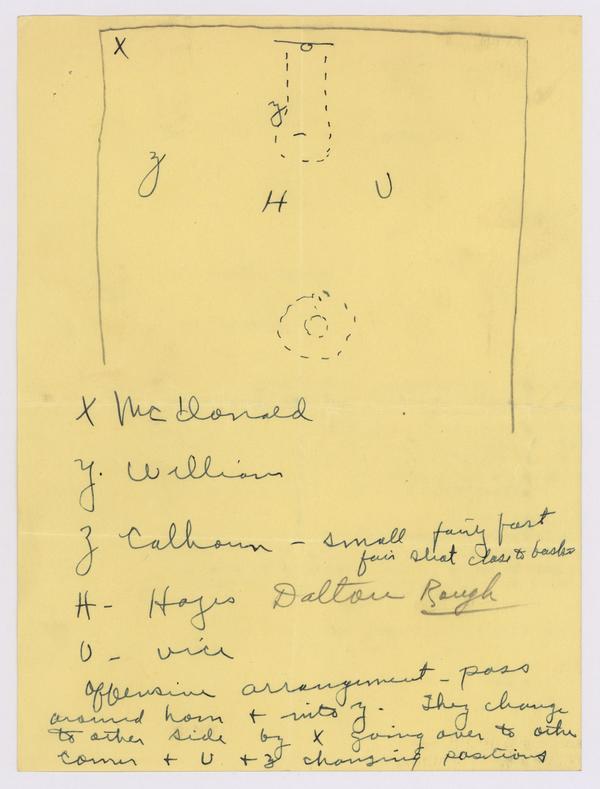 X
y
z
H
U
X McDonald
y. William
z Calhoun - small fairly fast
fair shot close to basket
H - Hayes Dalton Rough
U - vice
Offensive arrangement - pass
around horn + into y. They change
to other side by X going over to other
corner + U + z changing positions